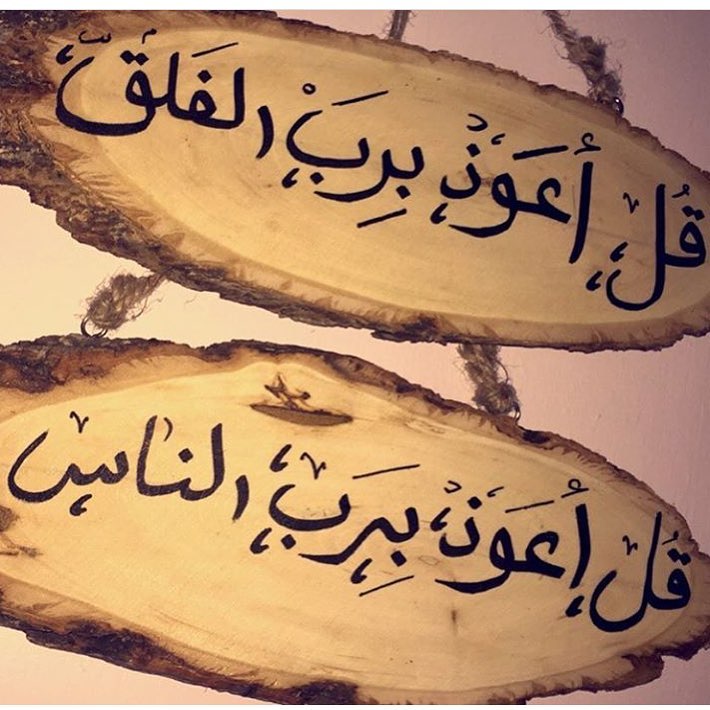 قُل أعَوذ بِرِبَ الفَلقّ
قُل أعَوذ بِرَب الناس